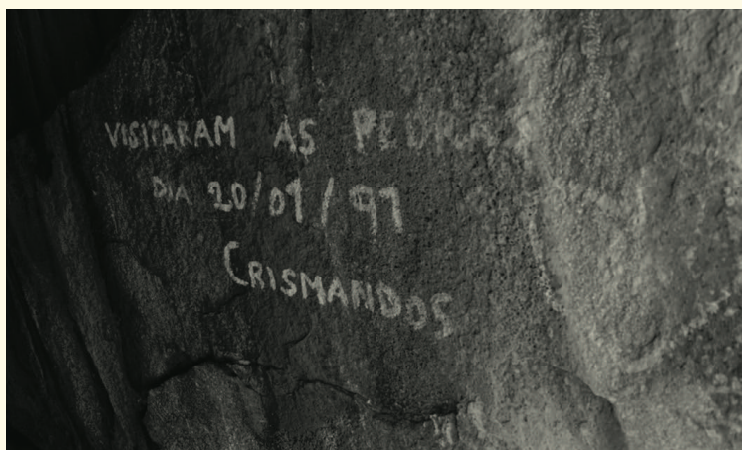 VISITARAM AS PEDRAS
DIA 20/01/91
CRISMANDOS